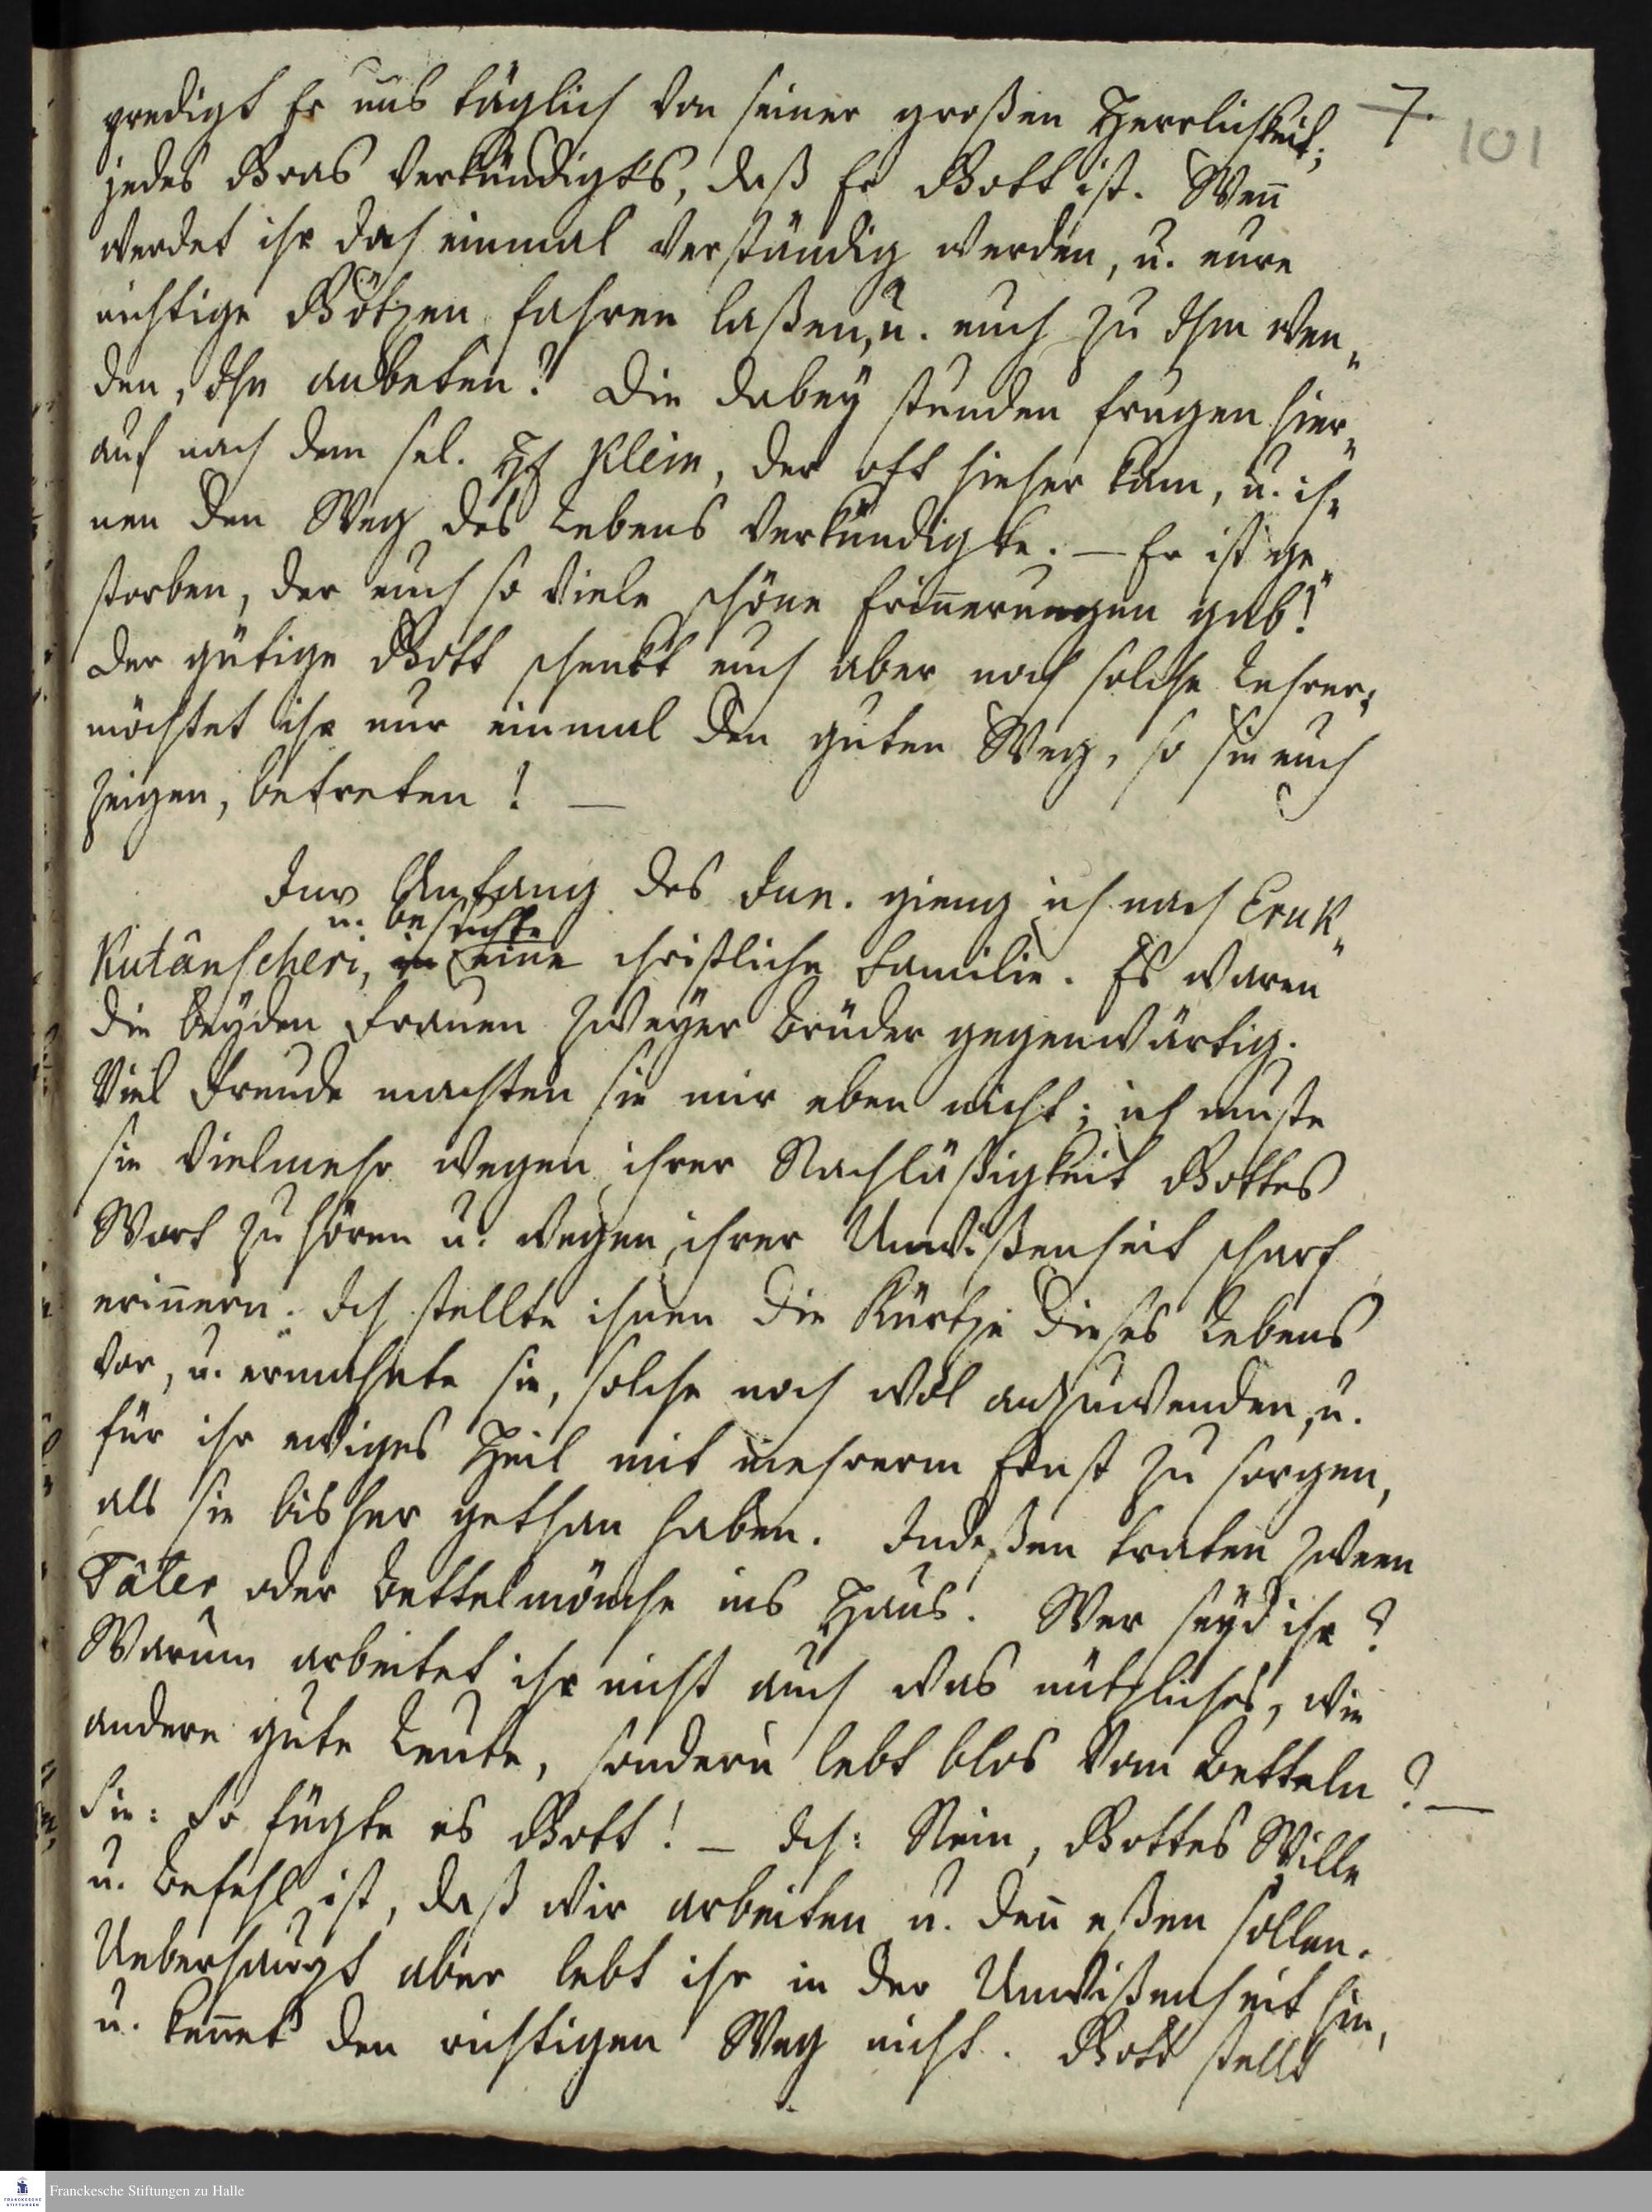 7.
101
predigt Er uns täglich von seiner großen Herrlichkeit;
jedes Gras verkündigts, daß Er Gott ist. Wenn̄
werdet ihr doch einmal verständig werden, u. eure
nichtige Götzen fahren laßen, u. euch zu Ihm wen„
den, Ihn anbeten? Die dabey stunden frugen hier„
auf nach dem sel. H. Klein, der oft hieher kam, u. ih„
nen den Weg des Lebens verkündigte. — Er ist ge„
storben, der euch so viele schöne Erin̄erungen gab!
Der gütige Gott schenkt euch aber noch solche Lehrer;
möchtet ihr nur einmal den guten Weg, so sie euch
zeigen, betreten! —
Im Anfang des Jun. gieng ich nach Eruk„
u. besuchte
Kutânscheri, in eine christliche Familie. Es waren
die beyden Frauen zweyer Brüder gegenwärtig.
Viel Freude machten sie mir eben nicht; ich muste
sie vielmehr wegen ihrer Nachläßigkeit Gottes
Wort zu hören u. wegen ihrer Unwißenheit scharf
erin̄ern. Ich stellte ihnen die Kürtze dieses Lebens
vor, u. ermahnte sie, solche noch wol anzuwenden, u.
für ihr ewiges Heil mit mehrerm Ernst zu sorgen,
als sie bisher gethan haben. Indeßen traten zween
Tâter oder Bettelmönche ins Haus. Wer seyd ihr?
Warum arbeitet ihr nicht auch was nützliches, wie
andere gute Leute, sondern lebt blos vom Betteln? —
Sie: So fügte es Gott! — Ich: Nein, Gottes Wille
u. Befehl ist, daß wir arbeiten u. den̄ eßen sollen.
Ueberhaupt aber lebt ihr in der Unwißenheit hin,
u. ken̄et den richtigen Weg nicht. Gott stellt
Franckesche Stiftungen zu Halle